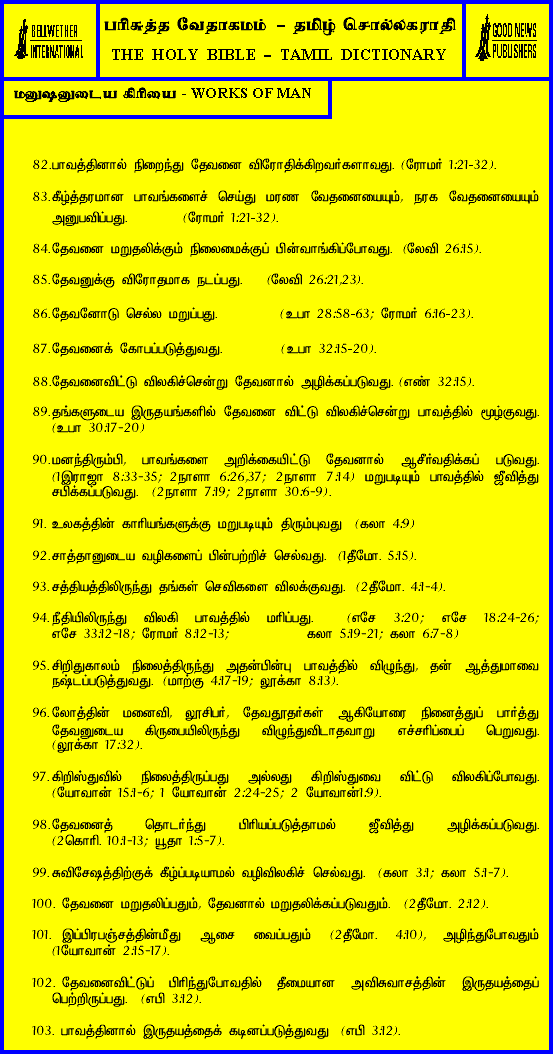 BELLWETHER
INTERNATIONAL
பரிசுத்த வேதாகமம் - தமிழ் சொல்லகராதி
THE HOLY BIBLE - TAMIL DICTIONARY
GOOD NEWS
PUBLISHERS
மனுஷனுடைய கிரியை - WORKS OF MAN
82.பாவத்தினால் நிறைந்து தேவனை விரோதிக்கிறவர்களாவது. (ரோமர் 1:21-32).
83.கீழ்த்தரமான பாவங்களைச் செய்து மரண வேதனையையும், நரக வேதனையையும்
அனுபவிப்பது. (ரோமர் 1:21-32).
84.தேவனை மறுதலிக்கும் நிலைமைக்குப் பின்வாங்கிப்போவது. (லேவி 26:15).
85.தேவனுக்கு விரோதமாக நடப்பது. (லேவி 26:21,23).
86.தேவனோடு செல்ல மறுப்பது. (உபா 28:58-63; ரோமர் 6:16-23).
87.தேவனைக் கோபப்படுத்துவது. (உபா 32:15-20).
88.தேவனைவிட்டு விலகிச்சென்று தேவனால் அழிக்கப்படுவது. (எண் 32:15).
89.தங்களுடைய இருதயங்களில் தேவனை விட்டு விலகிச்சென்று பாவத்தில் மூழ்குவது.
(உபா 30:17-20)
90.மனந்திரும்பி, பாவங்களை அறிக்கையிட்டு தேவனால் ஆசீர்வதிக்கப் படுவது.
(1இராஜா 8:33-35; 2நாளா 6:26,37; 2நாளா 7:14) மறுபடியும் பாவத்தில் ஜீவித்து
சபிக்கப்படுவது. (2நாளா 7:19; 2நாளா 30:6-9).
91. உலகத்தின் காரியங்களுக்கு மறுபடியும் திரும்புவது (கலா 4:9)
92.சாத்தானுடைய வழிகளைப் பின்பற்றிச் செல்வது. (1தீமோ. 5:15).
93.சத்தியத்திலிருந்து தங்கள் செவிகளை விலக்குவது. (2தீமோ. 4:1-4).
94.நீதியிலிருந்து விலகி பாவத்தில் மரிப்பது. (எசே 3:20; எசே 18:24-26;
எசே 33:12-18; ரோமர் 8:12-13; கலா 5:19-21; கலா 6:7-8)
95.சிறிதுகாலம் நிலைத்திருந்து அதன்பின்பு பாவத்தில் விழுந்து, தன் ஆத்துமாவை
நஷ்டப்படுத்துவது. (மாற்கு 4:17-19; லூக்கா 8:13).
96.லோத்தின் மனைவி, லூசிபர், தேவதூதர்கள் ஆகியோரை நினைத்துப் பார்த்து
தேவனுடைய கிருபையிலிருந்து விழுந்துவிடாதவாறு எச்சரிப்பைப் பெறுவது.
(லூக்கா 17:32).
97.கிறிஸ்துவில் நிலைத்திருப்பது அல்லது கிறிஸ்துவை விட்டு விலகிப்போவது.
(யோவான் 15:1-6; 1 யோவான் 2:24-25; 2 யோவான்1:9).
98.தேவனைத் தொடர்ந்து பிரியப்படுத்தாமல் ஜீவித்து அழிக்கப்படுவது.
(2கொரி. 10:1-13; யூதா 1:5-7).
99.சுவிசேஷத்திற்குக் கீழ்ப்படியாமல் வழிவிலகிச் செல்வது. (கலா 3:1; கலா 5:1-7).
100. தேவனை மறுதலிப்பதும், தேவனால் மறுதலிக்கப்படுவதும். (2தீமோ. 2:12).
101. இப்பிரபஞ்சத்தின்மீது ஆசை வைப்பதும் (2தீமோ. 4:10), அழிந்துபோவதும்
(1யோவான் 2:15-17).
102. தேவனைவிட்டுப் பிரிந்துபோவதில் தீமையான அவிசுவாசத்தின் இருதயத்தைப்
பெற்றிருப்பது. (எபி 3:12).
103. பாவத்தினால் இருதயத்தைக் கடினப்படுத்துவது (எபி 3:12).